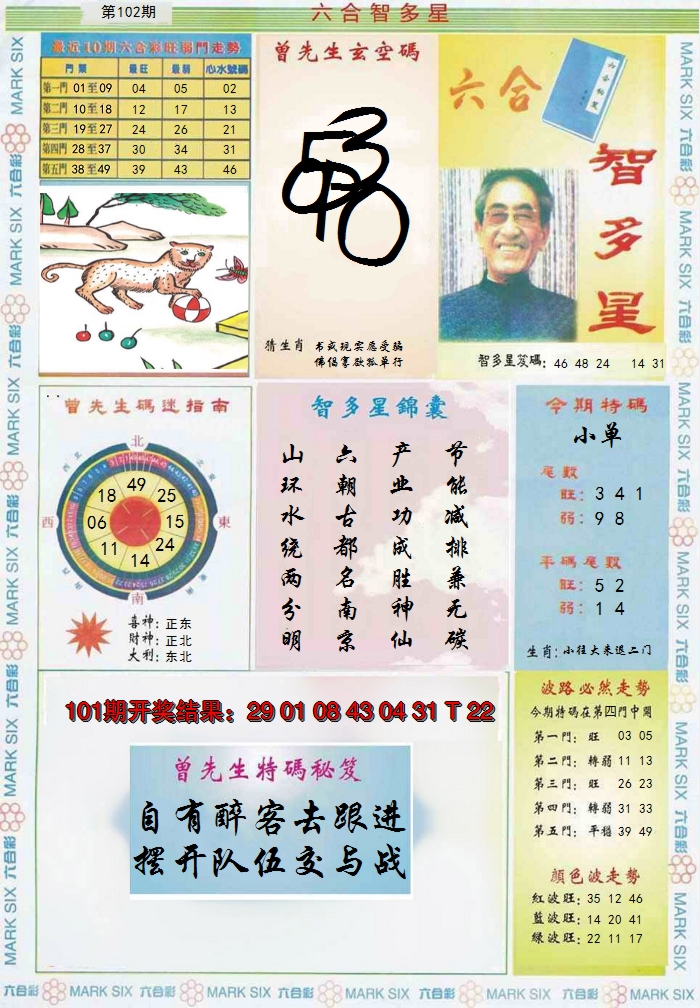 第102期
六合智多星
最近10期六合彩旺弱門走勢
門類 最旺 最弱 心水號碼
第一門 01至09 04 05 02
第二門 10至18 12 17 13
第三門 19至27 24 26 21
第四門 28至37 30 34 31
第五門 38至49 39 43 46
曾先生玄空碼
猜生肖 书或现实应受骗
佛侣寡欲孤单行
六合
智多星
智多星笈碼: 46 48 24 14 31
曾先生碼迷指南
北
西
東
南
49
25
15
24
14
11
06
18
喜神: 正东
财神: 正北
大利: 东北
智多星錦囊
节能减排兼无碳
产业功成胜神仙
六朝古都名南京
山环水绕两分明
今期特碼
小单
尾數
旺: 3 4 1
弱: 9 8
平碼尾數
旺: 5 2
弱: 1 4
生肖: 小往大来退二门
101期开奖结果: 29 01 08 43 04 31 T 22
曾先生特碼秘笈
自有醉客去跟进
摆开队伍交与战
波路必然走势
今期特碼在第四門中開
第一門: 旺 03 05
第二門: 轉弱 11 13
第三門: 旺 26 23
第四門: 轉弱 31 33
第五門: 平穩 39 49
顏色波走勢
紅波旺: 35 12 46
藍波旺: 14 20 41
綠波旺: 22 11 17
六合彩 MARK SIX